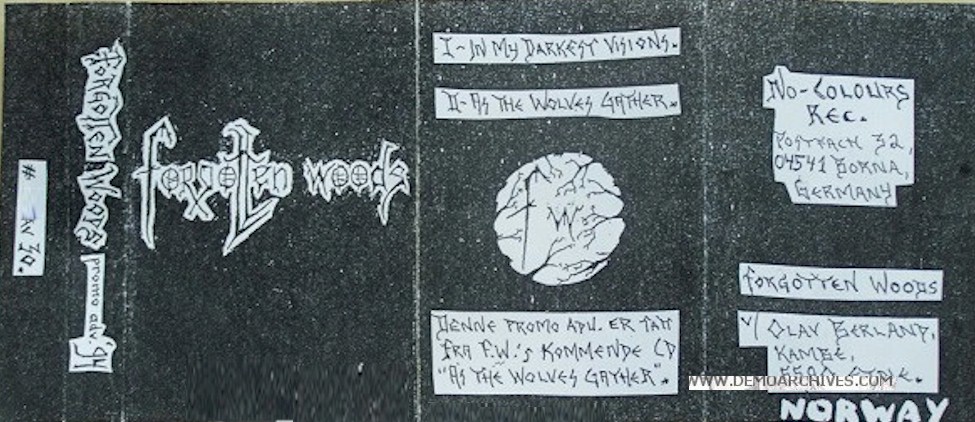 # AV 30.
FORGOTTEN WOODS
promo adv. '94
forgotten woods
I - IN MY DARKEST VISIONS.
II - AS THE WOLVES GATHER.
FW
DENNE PROMO ADV. ER TATT
FRA F.W.'S KOMMENDE CD
"AS THE WOLVES GATHER".
NO-COLOURS
REC.
POSTFACH 32,
04541 BORNA,
GERMANY
FORGOTTEN WOODS
V/ OLAV BERLAND,
KAMBE,
NORWAY
WWW.DEMOARCHIVES.COM